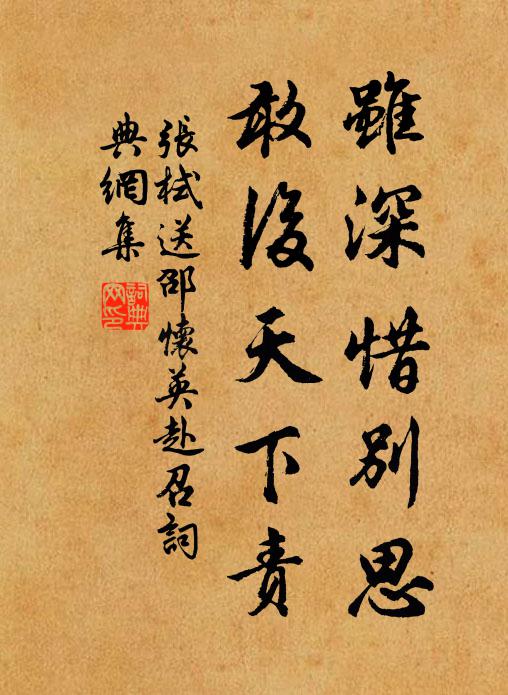 雖深惜別思
敢後天下責
張栻送邵懷英赴召詞
典網集
詞典網印